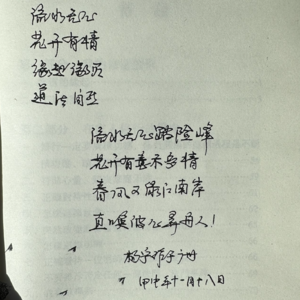 流水无心
花开有情
缘起缘灭
道法自然
流水无心踏险峰
花开有意不多情
春风又绿江南岸
真心唤波心易再人！
甲申年十一月十八日